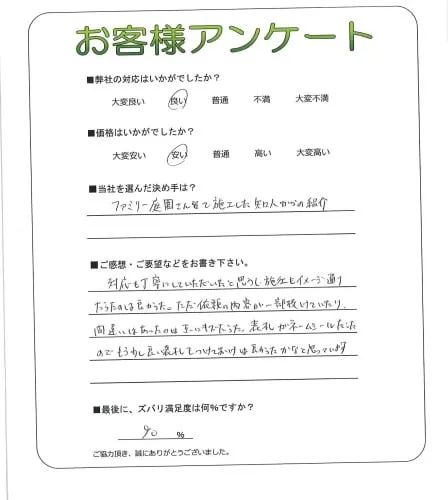 お客様アンケート
■弊社の対応はいかがでしたか?
大変良い 良い 普通 不満 大変不満
■価格はいかがでしたか?
大変安い 安い 普通 高い 大変高い
■当社を選んだ決め手は?
ファミリー庭園さんで施工した知人からの紹介
■ご感想・ご要望などをお書き下さい。
対応も丁寧にしていただいたと思うし施工もイメージ通り
だったのは良かった。ただ依頼の内容が一部抜けていたり、
間違いはあったのは
だった。表札がネームシールだった
のでもう少し良い表札をつけておけば良かったかなと思っています
■最後に、ズバリ満足度は何%ですか?
90 %
ご協力頂き、誠にありがとうございました。